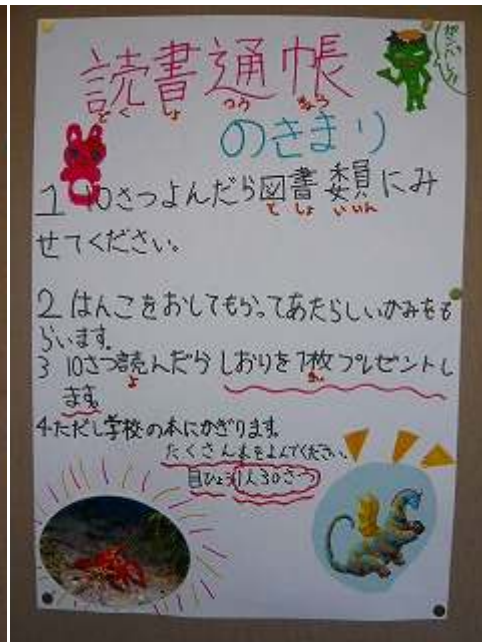 読書通帳
どくしょつうちょう
のきまり
1 10さつよんだら図書委員にみ
としょいいん
せてください。
2 はんこをおしてもらってあたらしいかみをも
らいます。
3 10さつ読んだらしおりを1枚プレゼントし
よ まい
ます。
4 ただし学校の本にかぎります。
たくさん本をよんでください。
目ひょう1人30さつ